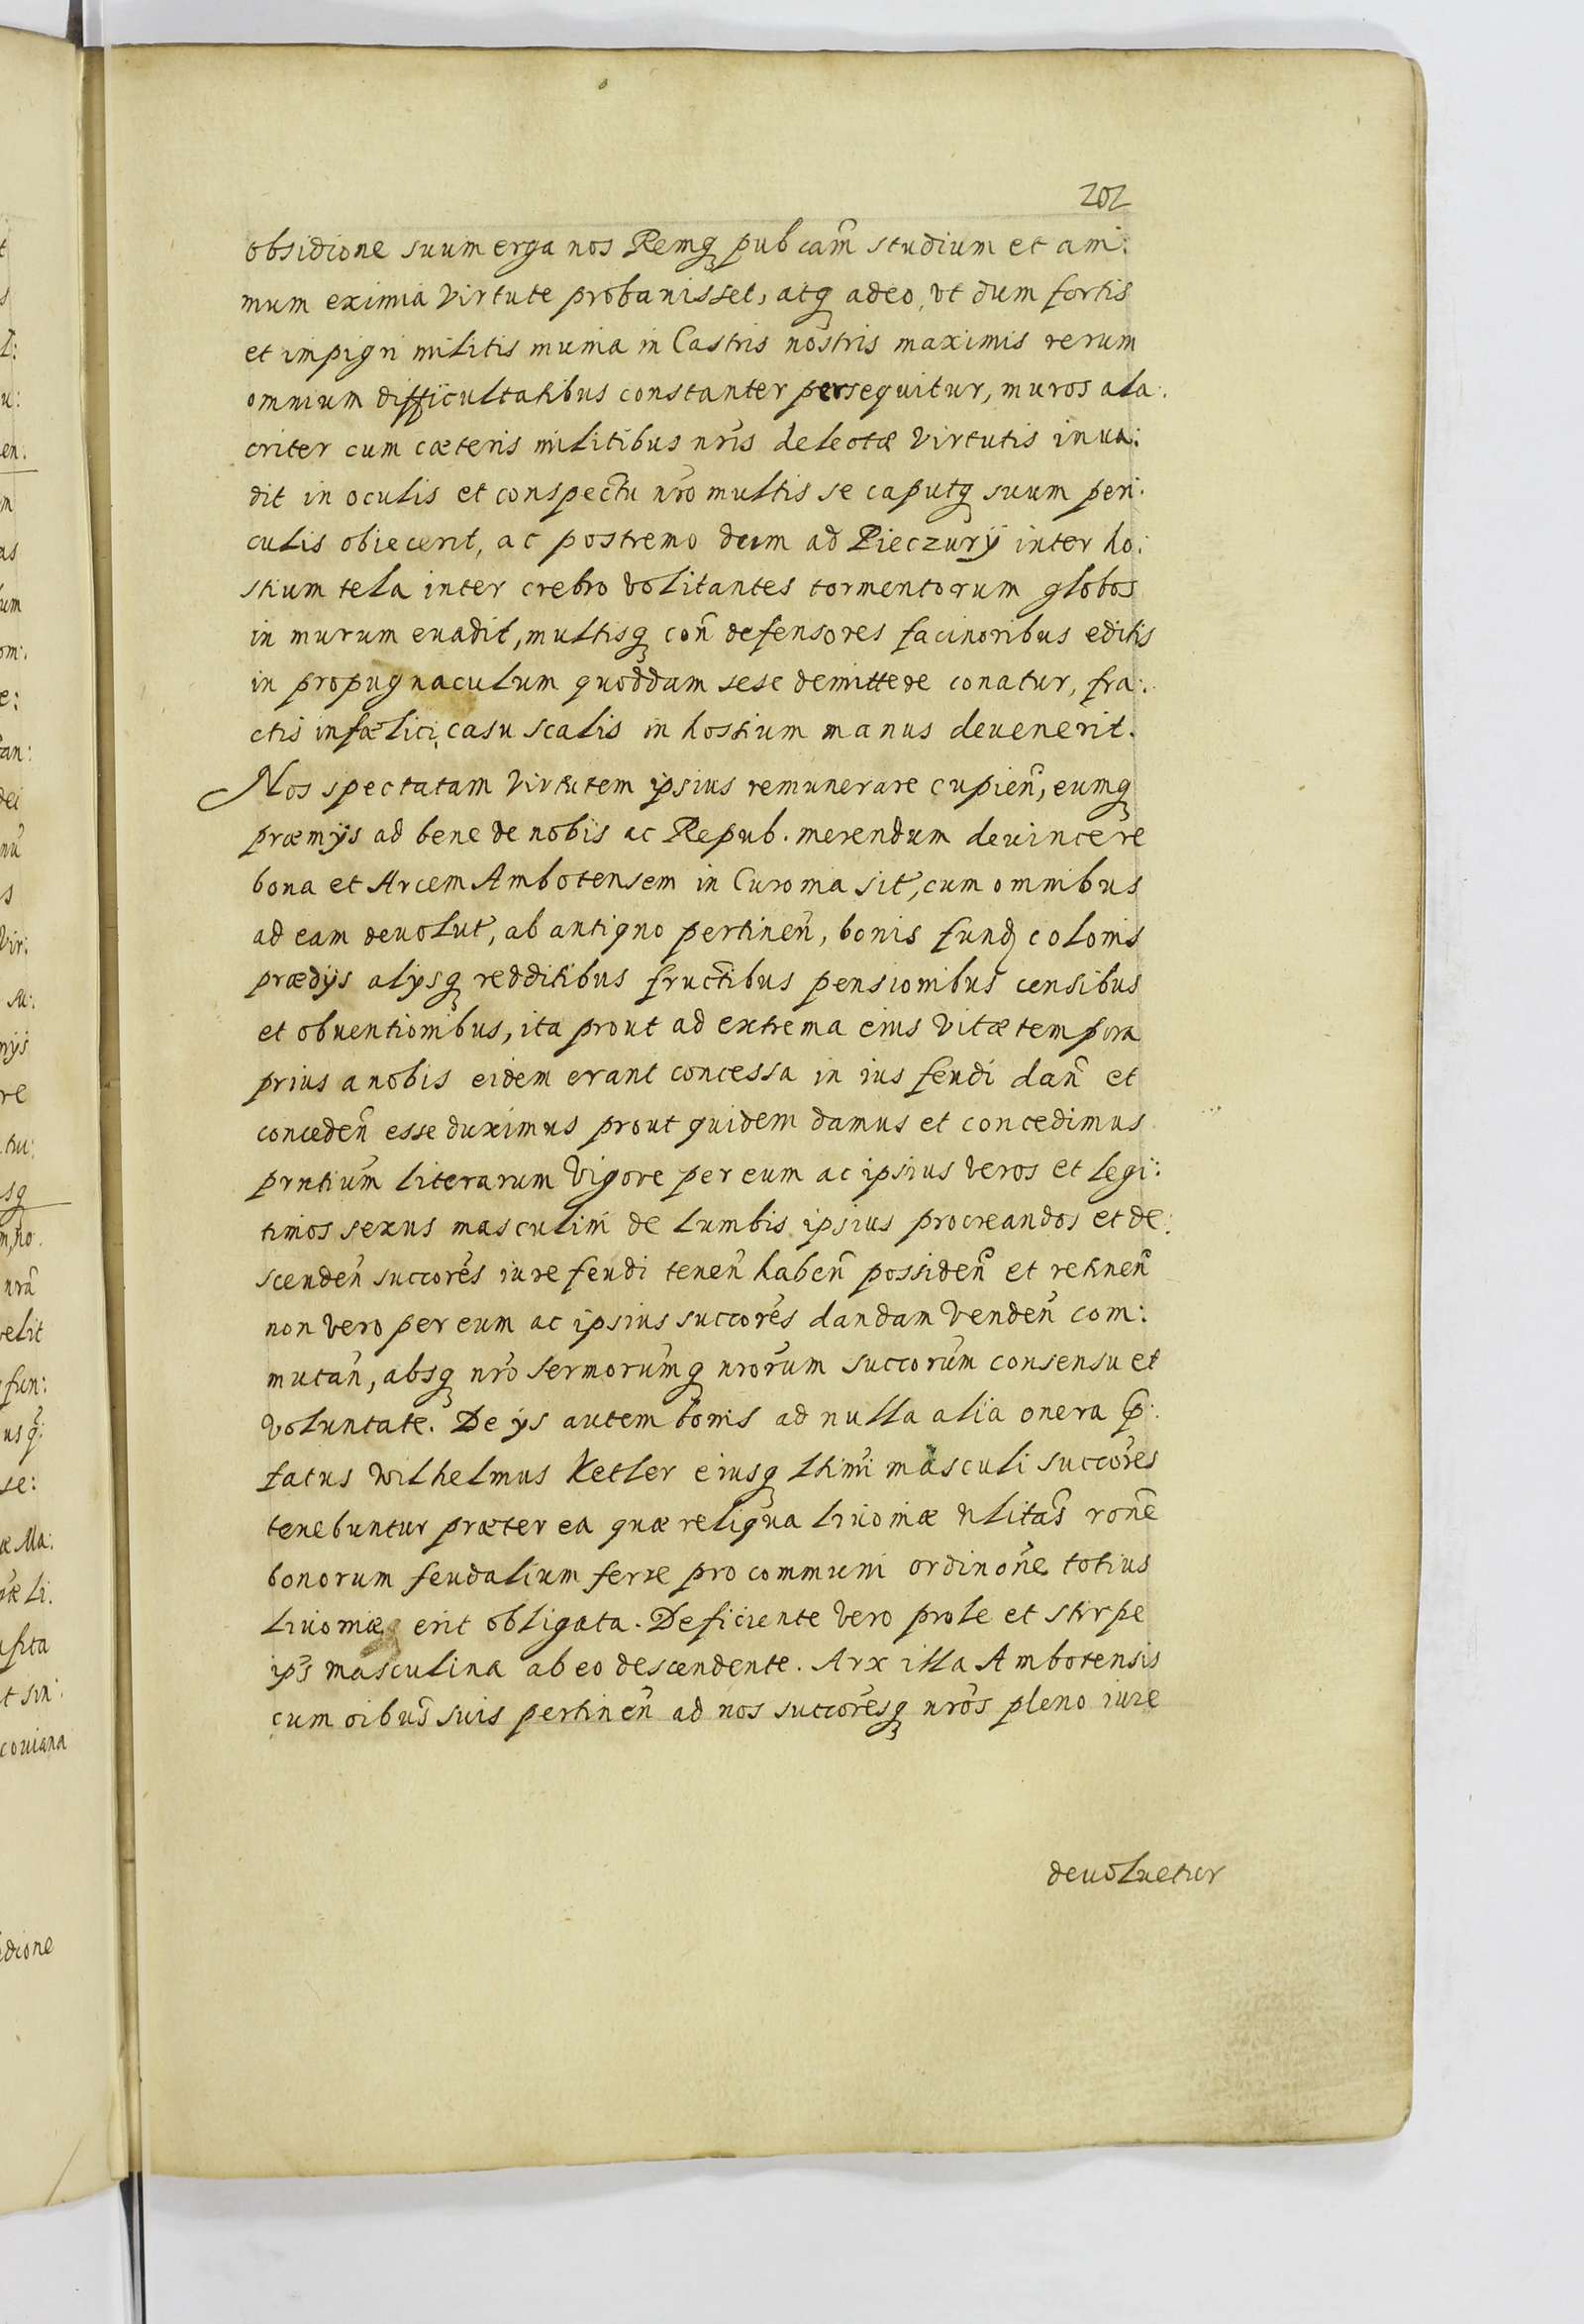 202
obsidione suum erga nos Remq pubcam̃ studium et ani:
mum eximia virtute probauisset, atq adeo, vt dum fortis
et impigri militis munia in Castris nostris maximis rerum
omnium difficultatibus constanter persequitur, muros ala:
criter cum cæteris militibus nr̃is delectæ virtutis inua:
dit in oculis et conspectu nr̃o multis se caputq suum peri:
culis obiecerit, ac postremo dum ad Pieczury inter ho:
stium tela inter crebro volitantes tormentorum globos
in murum euadit, multisq coñ defensores facinoribus editis
in propugnaculum quoddam sese demittere conatur, fra:
ctis infælici casu scalis in hostium manus deuenerit.
Nos spectatam virtutem ipsius remunerare cupieñ, eumq
præmÿs ad bene de nobis ac Repub. merendum deuincere
bona et Arcem Ambotensem in Curonia sit̃, cum omnibus
ad eam deuolut̃, ab antiquo pertineñ, bonis fund colonis
prædÿs alÿsq redditibus fructibus pensionibus censibus
et obuentionibus, ita prout ad extrema eius vitæ tempora
prius a nobis eidem erant concessa in ius feudi dañ et
concedeñ esse duximus prout quidem damus et concedimus
prñtium literarum vigore per eum ac ipsius veros et legi:
timos sexus masculini de lumbis ipsius procreandos et de:
scendeñ succores̃ iure feudi teneñ habeñ possideñ et retineñ
non vero per eum ac ipsius succores̃ dandam vendeñ com:
mutañ, absq nr̃o sermorum̃q nrorum̃ succorum̃ consensu et
voluntate. De ÿs autem bonis ad nulla alia onera p:
fatus Wilhelmus Ketler eiusq ltimi masculi succores̃
tenebuntur præter ea quæ reliqua Liuoniæ nlitas̃ rone̅
bonorum feudalium ferre pro communi ordinone̅ totius
Liuoniæ erit obligata. Deficiente vero prole et stirpe
ips̃ masculina ab eo descendente. Arx illa Ambotensis
cum oibus̃ suis pertineñ ad nos succores̃q nros̃ pleno iure
deuoluetur